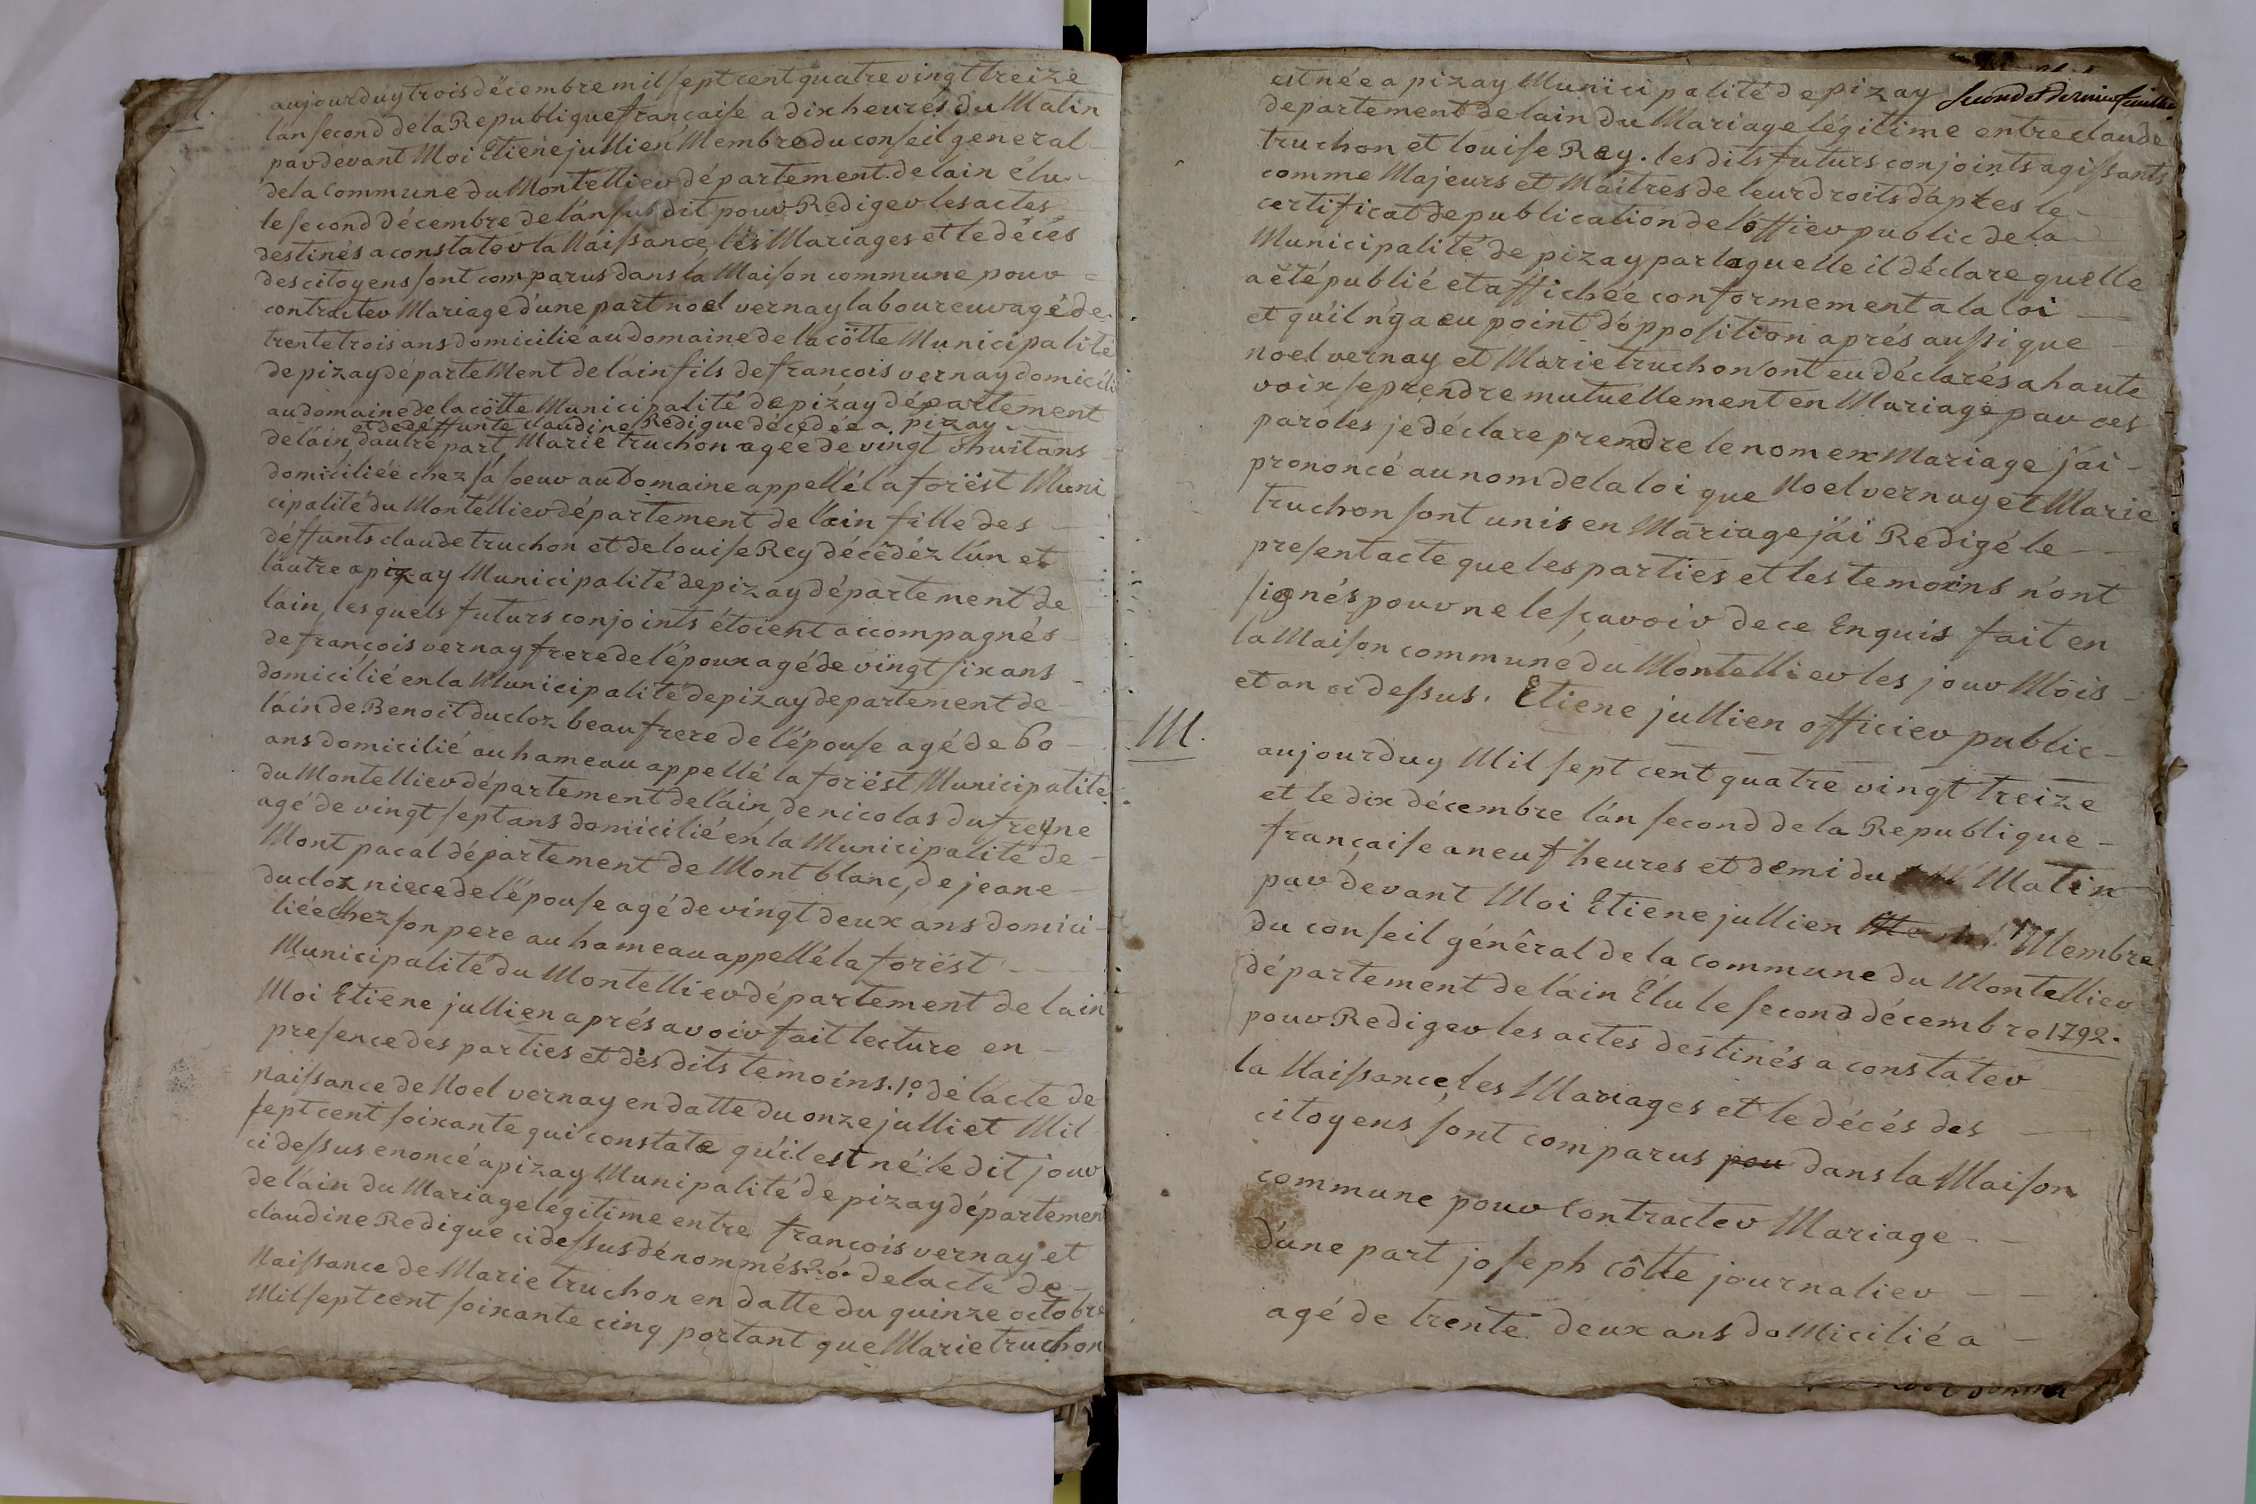 M.
aujourduy trois décembre mil sept cent quatre vingt treize
lan second dela Republique française a dix heures du Matin
par devant Moi Etiene jullien Membre du conseil general
dela commune du Montellier département delain élu
le second décembre de lan susdit pour Rediger les actes
destinés a constater la Naissance, les Mariages et le décés
des citoyens sont comparus dans la Maison commune pour
contracter Mariage d'une part noel vernay laboureur agé de
trente trois ans domicilié au domaine de la cötte Municipalité
de pizay département de láin fils de francois vernay domicilié
au domaine de la cötte Municipalité de pizay département
et de déffunte claudine Redigue décédée a pizay
de láin, dautre part Marie truchon agée de vingt & huit ans
domiciliée chez sá soeur au Domaine appellé la forëst Muni
cipalité du Montellier département de lain fille des
déffunts claude truchon et de louise Rey décédéz lún et
láutre a pizay Municipalité de pizay département de
láin, les quels futurs conjoints étoient accompagnés
de françois vernay frere de lépoux agé de vingt six ans
domicilié en la Municipalité de pizay departement de
láin de Benoit ducloz beau frere de lépouse agé de 60
ans domicilié au hameau appellé la forëst Municipalité
du Montellier département deláin, de nicolas dufresne
agé de vingt sept ans domicilié en la Municipalité de
Mont pacal département de Mont blanc, de jeane
ducloz niece de lépouse agé de vingt deux ans domici
liée chez son pere au hameau appellé la forëst
Municipalité du Montellier département de lain
Moi Etiene jullien aprés avoir fait lecture en
presence des parties et dés dits temoins. 1º. de lácte de
naissance de Noel vernay en datte du onze julliet Mil
sept cent soixante qui constate qúil est né le dit jour
ci dessus enoncé a pizay Munipalité de pizay département
de láin du Mariage legitime entre françois vernay et
claudine Redigue ci dessus dénommés. 2º. de lacte de
Naissance de Marie truchon en datte du quinze octobre
Mil sept cent soixante cinq portant que Marie truchon
second et dernier feuillet
est née a pizay Municipalité de pizay
departement de lain du Mariage légitime entre claude
truchon et louise Rey. les dits futurs conjoints agissants
comme Majeurs et Maitres de leur droits dáprès le
certificat de publication de lófficier public de la
Municipalité de pizay par laquelle il déclare quelle
a été publié et affichée conformement a la loi
et qúil n'y a eu point dópposition aprés aussi que
noel vernay et Marie truchon ont eu déclarés a haute
voix se prendre mutuellement en Mariage par ces
paroles je déclare prendre le nom en Mariage jái
prononcé au nom de la loi que Noel vernay et Marie
truchon sont unis en Mariage jái Redigé le
present acte que les parties et les temoins n'ont
signés pour ne le sçavoir de ce Enquis fait en
la Maison commune du Montellier les jour Mois
et an ci dessus. Etiene jullien officier public
M.
aujourduy Mil sept cent quatre vingt treize
et le dix décembre lán second de la Republique
française a neuf heures et demi du Matin
par devant Moi Etiene jullien Membre
du conseil général de la commune du Montellier
département de láin Élu le second décembre 1792.
pour Rediger les actes destinés a constater
la Naissance, les Mariages et le décés des
citoyens sont comparus pou dans la Maison
commune pour Contracter Mariage
dúne part joseph côtte journalier
agé de trente deux ans doMicilié a